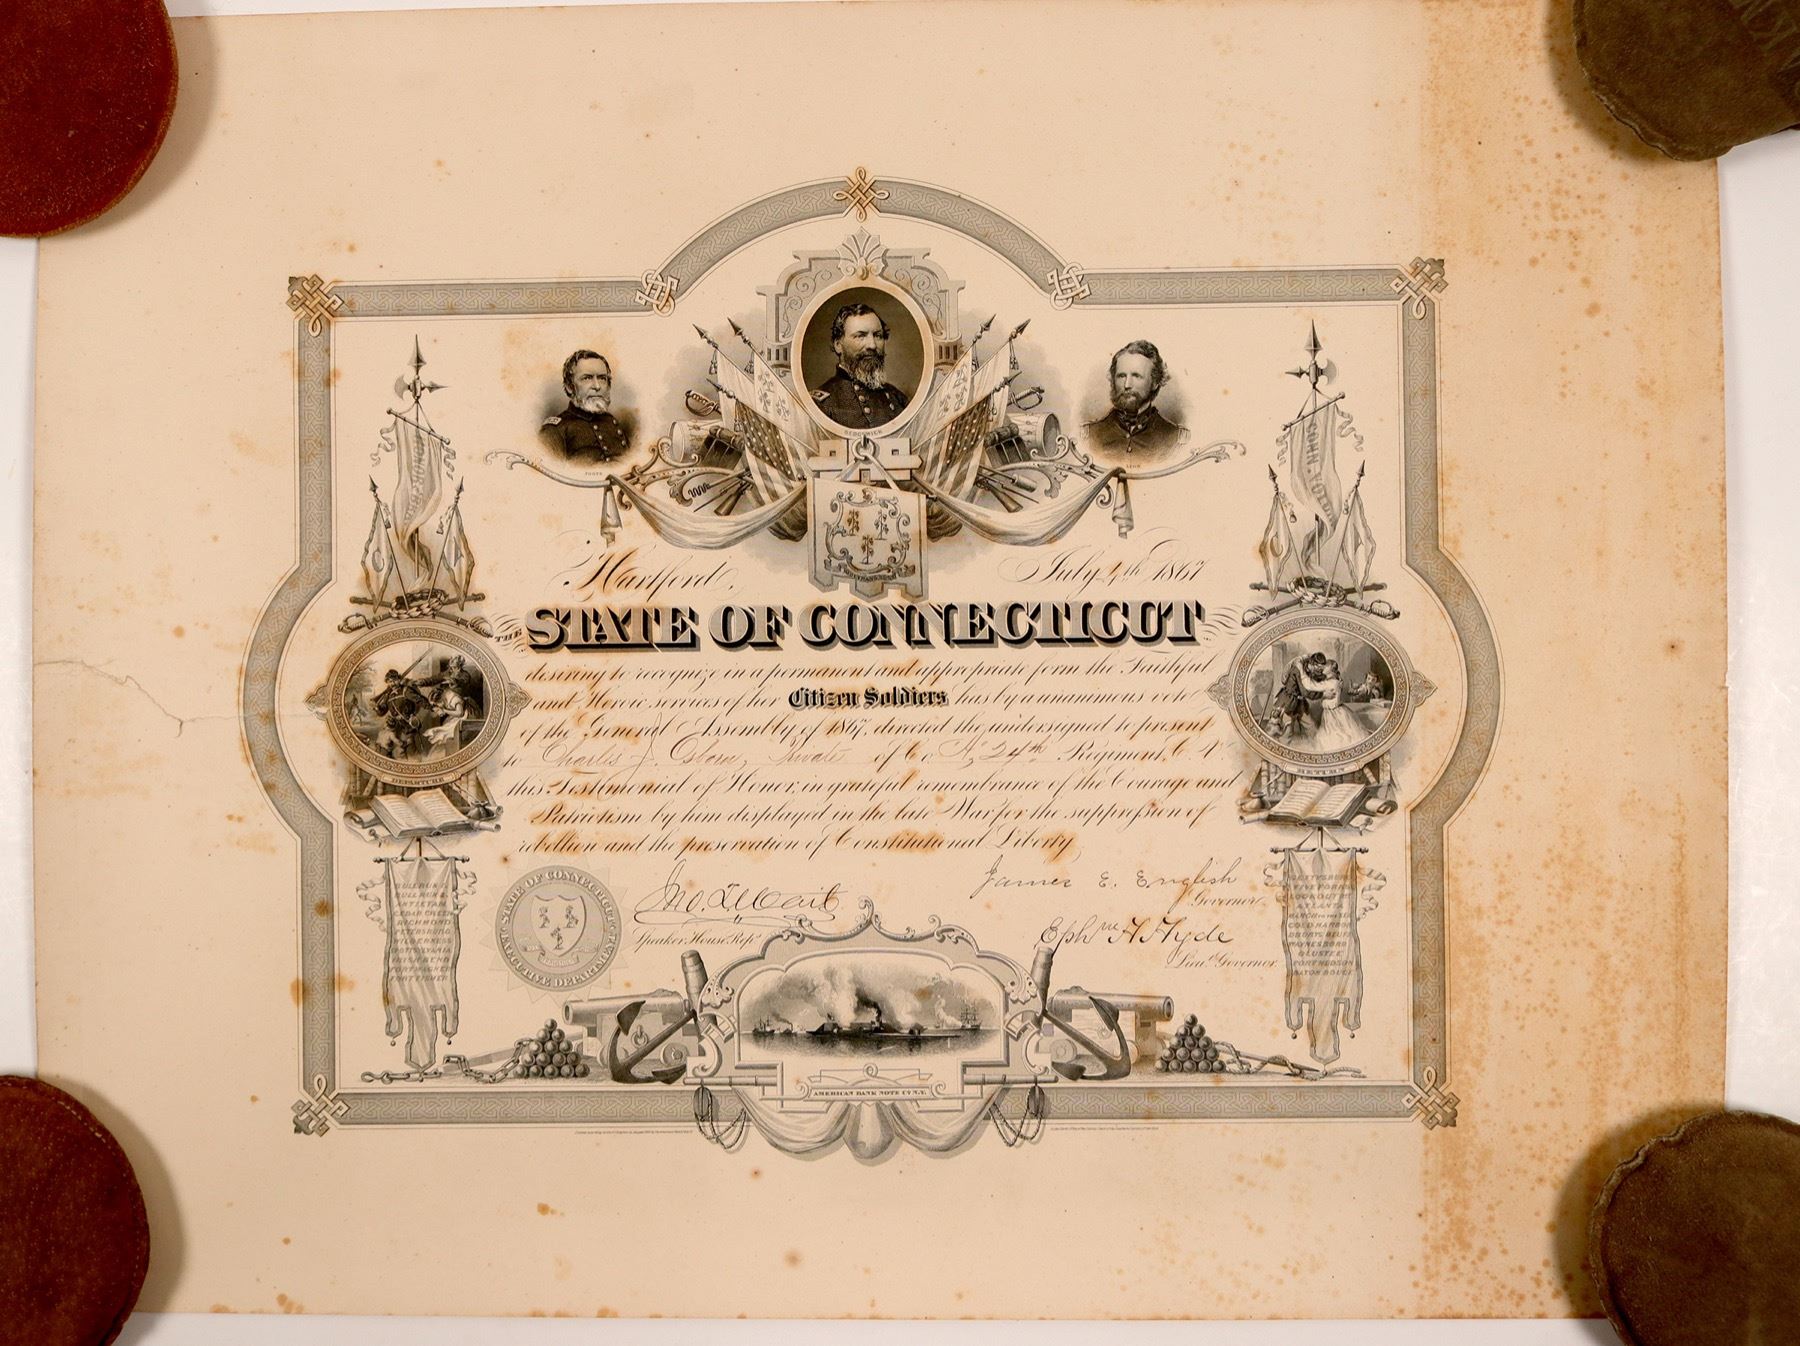 FOOTE
SEDGWICK
LYON
HONOR
CONN. VOLS
Hartford, July 4th 1867
THE STATE OF CONNECTICUT
desiring to recognize in a permanent and appropriate form the Faithful
and Heroic services of her Citizen Soldiers has by a unanimous vote
of the General Assembly of 1867, directed the undersigned to present
to Charles J. Osborn, Private of Co. A, 24th Regiment, C. V.
this Testimonial of Honor, in grateful remembrance of the Courage and
Patriotism by him displayed in the late War for the suppression of
rebellion and the preservation of Constitutional Liberty.
DEPARTURE
RETURN
STATE OF CONNECTICUT
EXECUTIVE DEPARTMENT
Jno. T. Wait
Speaker House Reps
James E. English
Governor
Ephm H Hyde
Lieut. Governor
BULL RUN 1.
BULL RUN 2.
ANTIETAM
CEDAR CREEK
RICHMOND
PETERSBURG
WILDERNESS
SPOTTSYLVANIA
IRISH BEND
FORT WAGNER
FORT FISHER
GETTYSBURG
FIVE FORKS
LOOKOUT MT
ATLANTA
MARCH TO THE SEA
COLD HARBOR
DRURYS BLUFF
WAYNESBORO
OLUSTEE
PORT HUDSON
BATON ROUGE
AMERICAN BANK NOTE CO. N.Y.